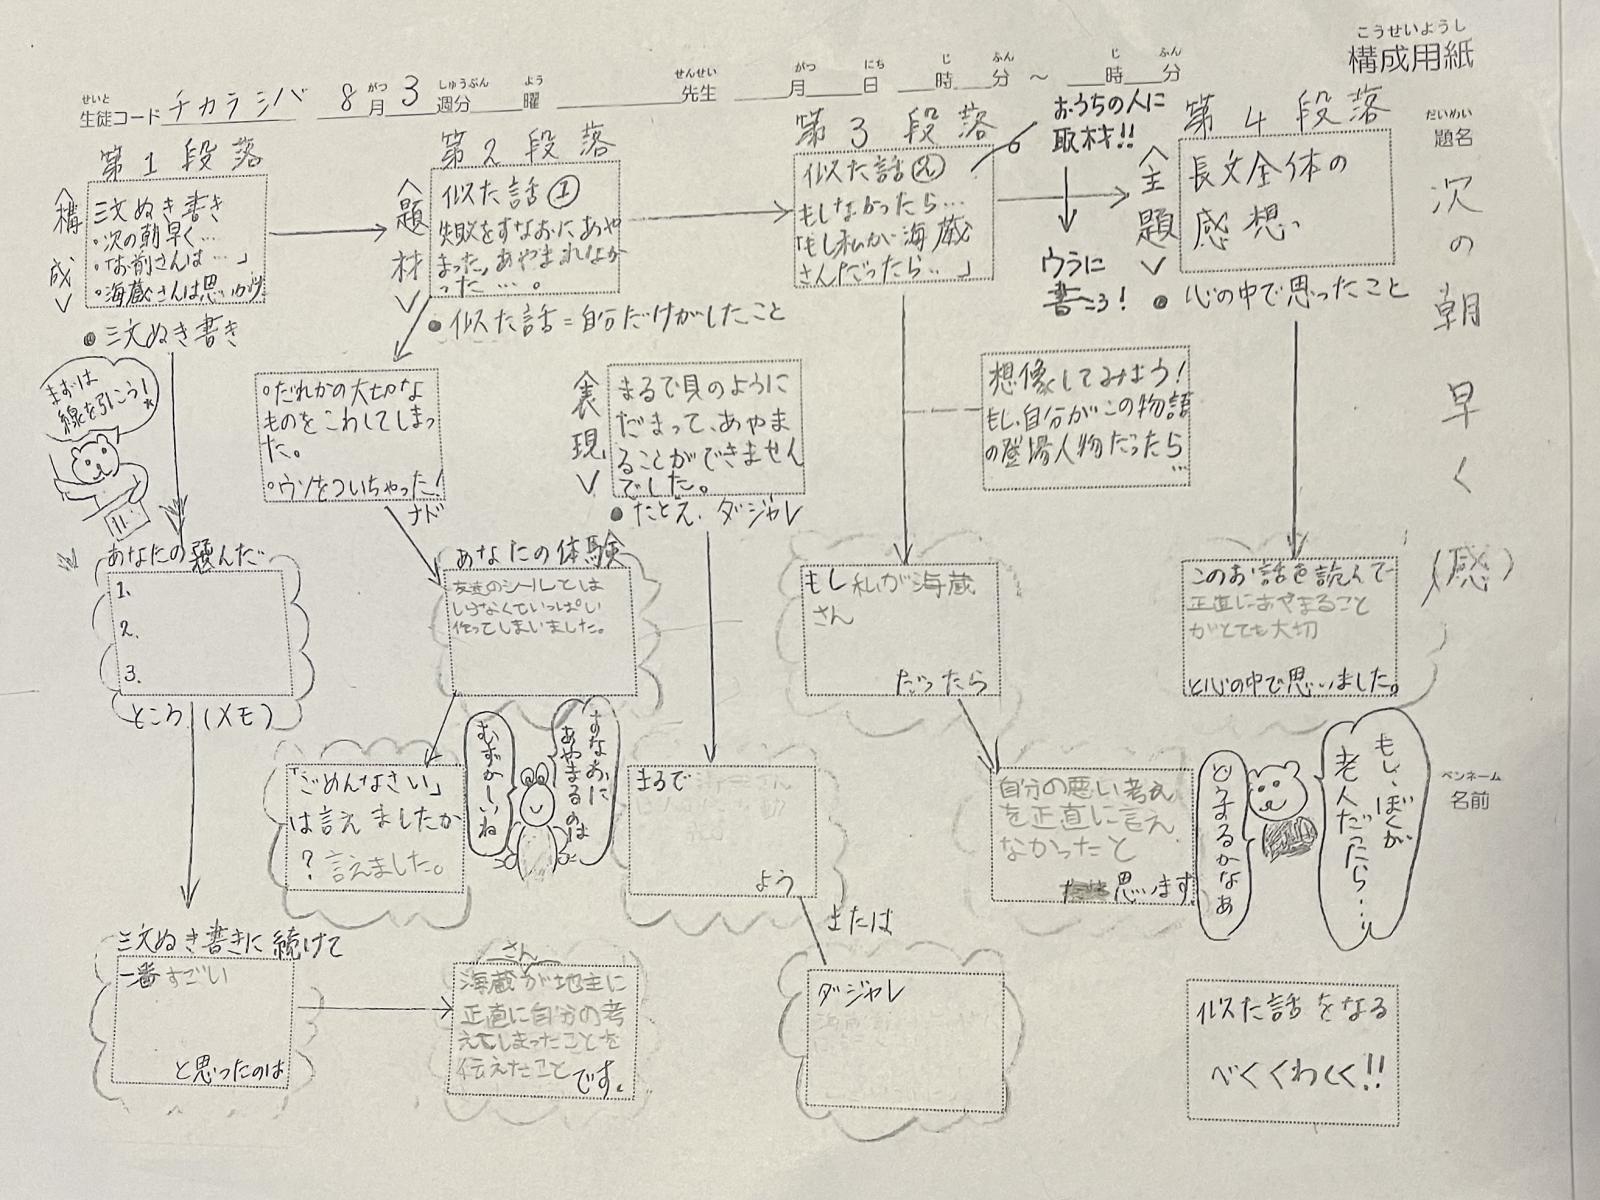 こうせいようし
構成用紙
せいと
生徒コード チカラシバ 8月 3週分 曜 先生 月 日 時 分 ~ 時 分
がつ しゅうぶん よう せんせい がつ にち じ ふん じ ふん
だいめい
題名
次の朝早く
(感)
ペンネーム
名前
第1段落
<構成>
三文ぬき書き
・次の朝早く…
・「お前さんは…」
・海蔵さんは思いがけ
●三文ぬき書き
まずは
線を引こう!
あなたの選んだ
1.
2.
3.
ところ(メモ)
三文ぬき書きに続けて
一番すごい
と思ったのは
さん
海蔵が地主に
正直に自分の考
えてしまったことを
伝えたこと
です。
第2段落
<題材>
似た話①
失敗をすなおにあや
まった。あやまれなか
った…。
●似た話=自分だけがしたこと
○だれかの大切な
ものをこわしてしまっ
た。
○ウソをついちゃった!
ナド
あなたの体験
友達のシールしては
いけなくていっぱい
作ってしまいました。
「ごめんなさい」
は言えましたか
? 言えました。
すなおに
あやまるのは
むずかしいね
<表現>
まるで貝のように
だまって、あやま
ることができません
でした。
●たとえ・ダジャレ
まるで
よう
または
ダジャレ
第3段落
似た話②
もしなかったら…
「もし私が海蔵
さんだったら…」
おうちの人に
取材!!
ウラに
書こう!
想像してみよう!
もし、自分がこの物語
の登場人物だったら
…
もし私が海蔵
さん
だったら
自分の悪い考え
を正直に言え
なかったと
思います
第4段落
<主題>
長文全体の
感想。
●心の中で思ったこと
このお話を読んで
正直にあやまること
がとても大切
と心の中で思いました。
もし、ぼくが
老人だったら…
どうするかなぁ
似た話をなる
べくくわしく!!